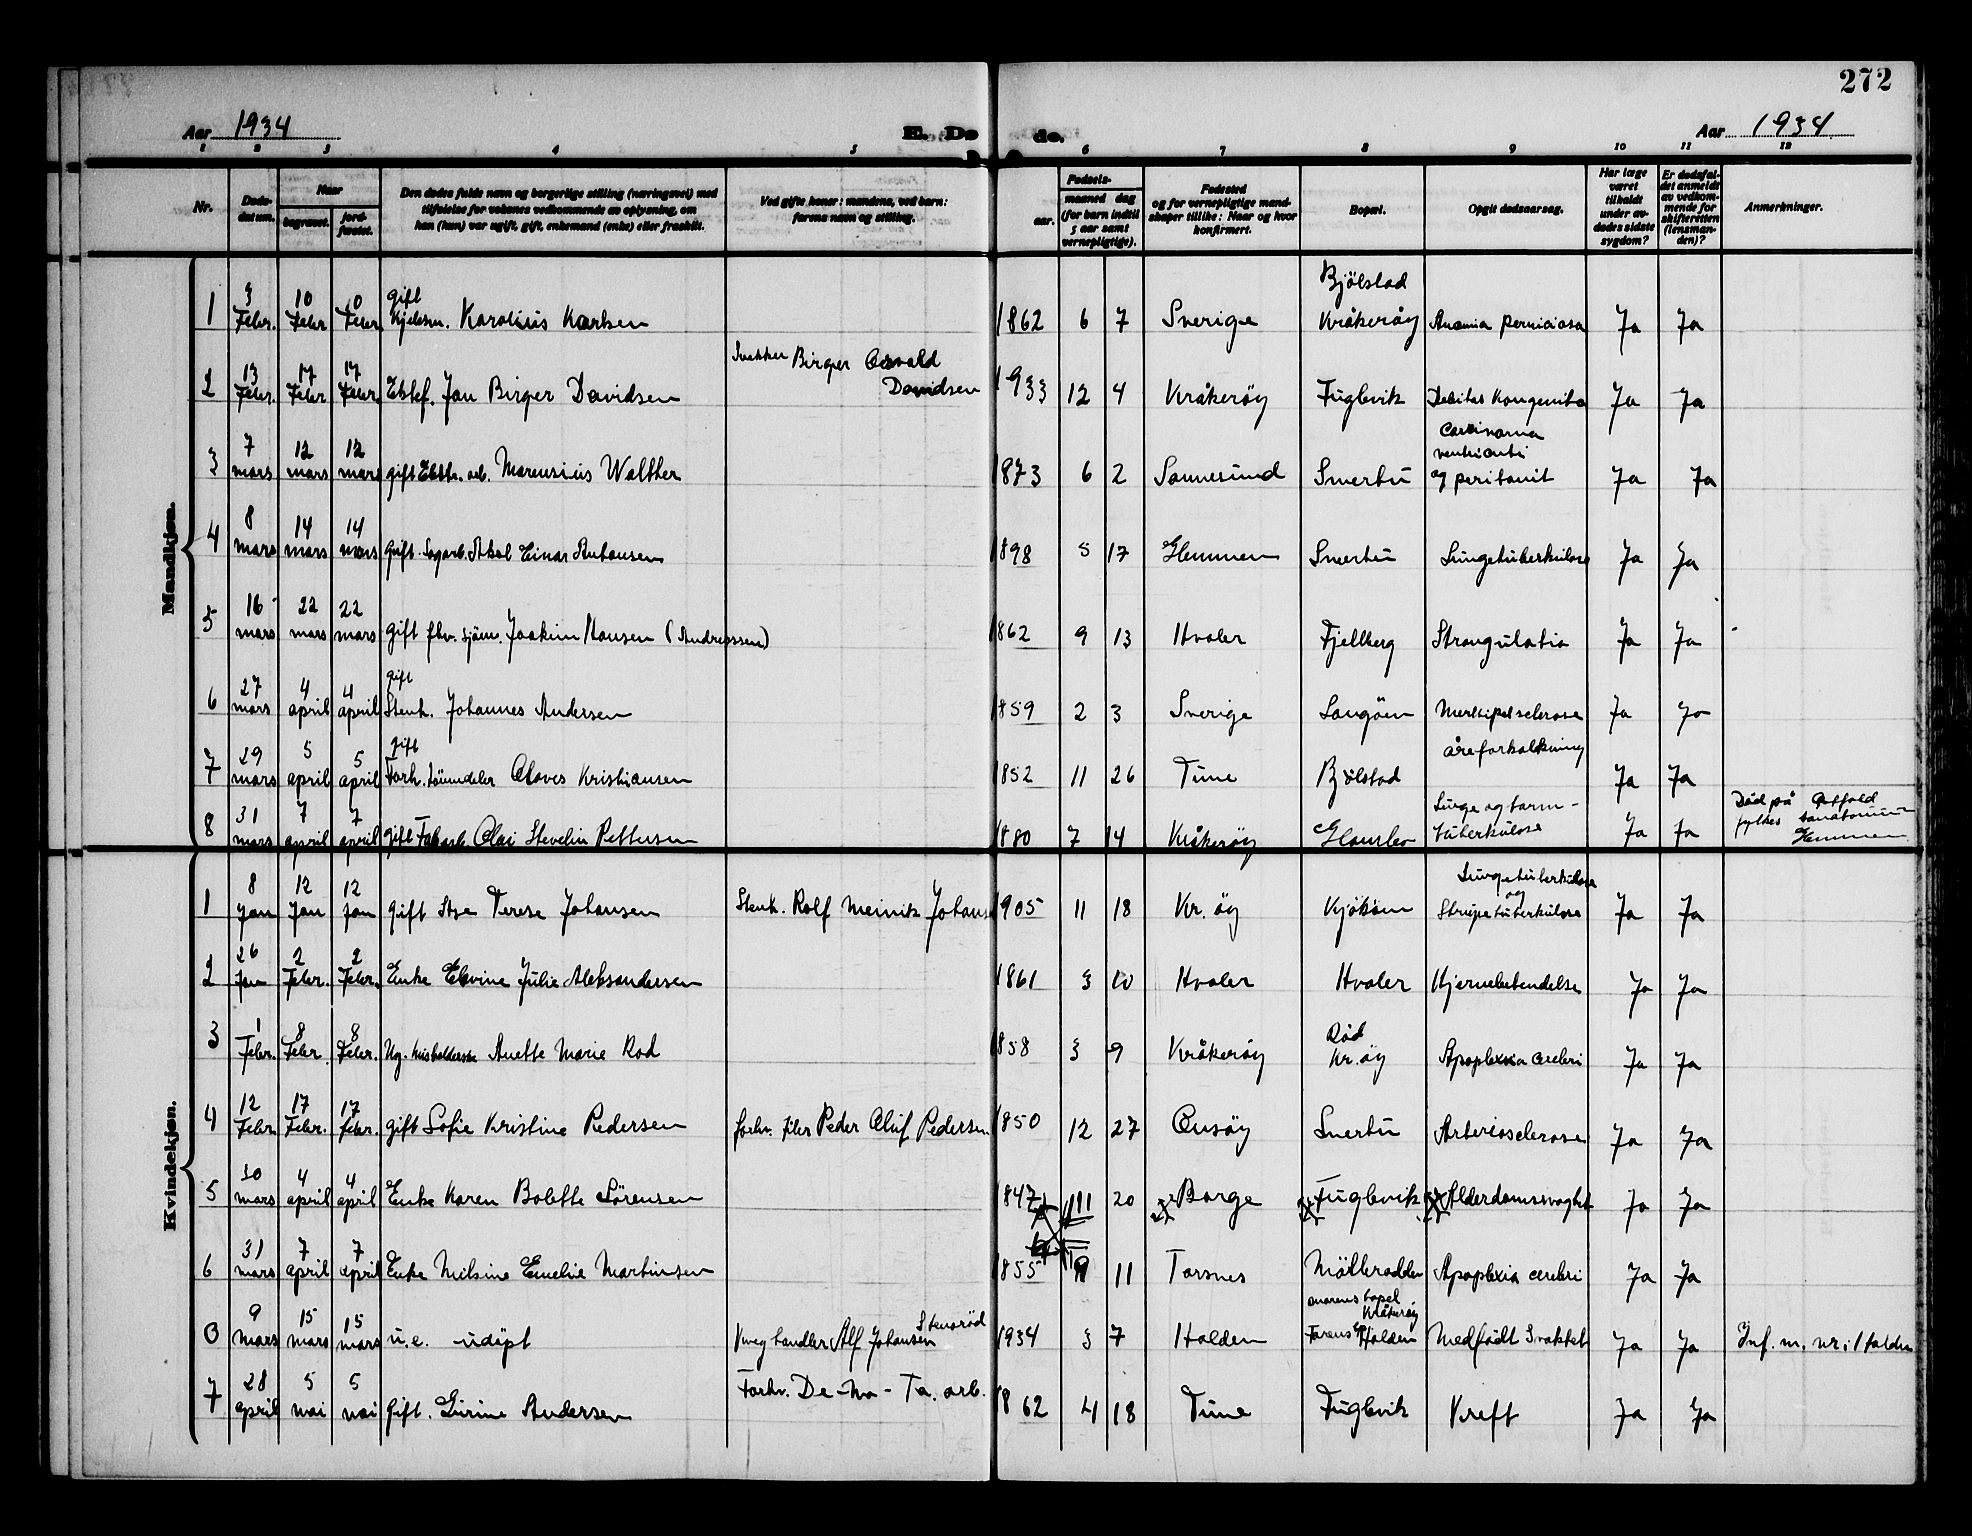 272
Aar 1934
E. Dø
de.
Aar 1934
1 2 3 4 5 6 7 8 9 10 11 12
Nr.
Døds-datum.
Naar
begravet.
jord-fæstet.
Den dødes fulde navn og borgerlige stilling (næringsvei) med
tilføielse for voksnes vedkommende av oplysning, om
han (hun) var ugift, gift, enkemand (enke) eller fraskilt.
Ved gifte koner: mandens, ved barn:
farens navn og stilling.
Fødsels-
aar.
maaned dag
(for barn indtil
5 aar samt
vernepligtige).
Fødested
og for vernepligtige mand-
skaper tillike: Naar og hvor
konfirmert.
Bopæl.
Opgit dødsaarsag.
Har læge
været
tilkaldt
under av-
dødes sidste
sygdom?
Er dødsfal-
det anmeldt
av vedkom-
mende for
skifteretten
(lensman-
den)?
Anmerkninger.
Mandkjøn.
1 3 Febr. 10 Febr 10 Febr gift Karolius Karlsen 1862 6 7 Sverige Bjölstad Kråkeröy Anæmia perniciosa Ja Ja
2 13 Febr. 17 Febr 17 Febr. Jan Birger Davidsen Snekker Birger Osvald Davidsen 1933 12 4 Kråkeröy Fuglevik Debilitas Kongenita Ja Ja
3 7 mars 12 mars 12 mars gift arb. Marensius Walther 1873 6 2 Sannesund Smertu Carcinoma ventriculi og peritonit Ja Ja
4 8 mars 14 mars 14 mars gift. Sagarb. Aksel Einar Antonsen 1898 5 17 Glemmen Smertu Lungetuberkulose Ja Ja
5 16 mars 22 mars 22 mars gift fhv. sjöm. Joakim Hansen (Andreassen) 1862 9 13 Hvaler Fjellberg Strangulatio Ja Ja
6 27 mars 4 april 4 april gift Stenh. Johannes Andersen 1859 2 3 Sverige Langöen Ja Ja
7 29 mars 5 april 5 april gift Forh. Oloves Kristiansen 1852 11 26 Tune Bjölstad åreforkalkning Ja Ja
8 31 mars 7 april 7 april gift Fabarb. Olai Severin Pettersen 1880 7 14 Kråkeröy Lunge og tarm-tuberkulose Ja Ja Död på Östfold fylkes sanatorium Glemmen
Kvindekjøn.
1 8 Jan 12 Jan 12 Jan gift Terese Johansen Stenh. Rolf Meinik Johans 1905 11 18 Kr.öy Kjököen Lungetuberkulose og Strupetuberkulose Ja Ja
2 26 Jan 2 Febr. 2 Febr. Enke Elevine Julie Aleksandersen 1861 3 10 Hvaler Hvaler Hjernebetendelse Ja Ja
3 1 Febr. 8 Febr 8 Febr. Ug. husholderske Anette Marie Rod 1858 3 9 Kråkeröy Röd Kr.öy Apoplexia cerebri Ja Ja
4 12 Febr 17 Febr. 17 febr. gift Sofie Kristine Pedersen forhv. filer Peder Oluf Pedersen 1850 12 27 Onsöy Smertu Arteriosclerose Ja Ja
5 30 mars 4 april 4 april Enke Karen Bolette Sörensen 1847 11 20 Borge Fuglevik Alderdomssvaghet Ja Ja
6 31 mars 7 april 7 april Enke Milsine Emelie Martinsen 1855 9 11 Torsnes Mölleradden Apoplexia cerebri Ja Ja
0 9 mars 15 mars 15 mars u.e. udöpt handler Alf Johansen Stensröd 1934 3 7 Halden morens bopel Kråkeröy Farens Halden Medfödt Svakhet Ja Ja Inf. m. nr. i Halden
7 28 april 5 mai 5 mai gift. Lurine Andersen Forhv. De-No-Fa. arb. 1862 4 18 Tune Fuglevik Kreft Ja Ja